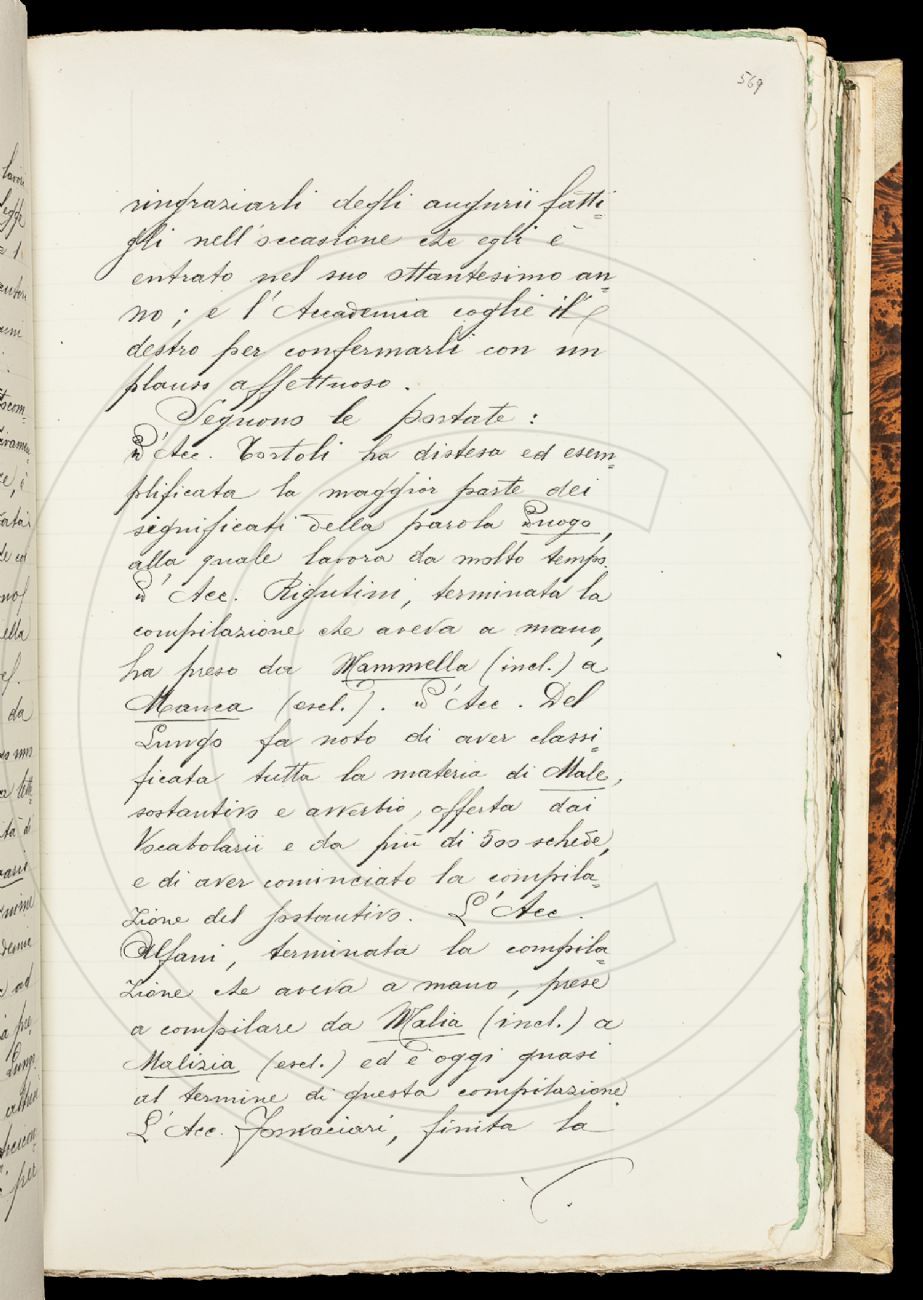 569
ringraziarli degli augurii fatti=
gli nell'occasione che egli è
entrato nel suo ottantesimo an=
no; e l'Accademia coglie il
destro per confermarli con un
plauso affettuoso.
Seguono le portate:
L'Acc. Tortoli ha distesa ed esem=
plificata la maggior parte dei
significati della parola Luogo,
alla quale lavora da molto tempo.
L'Acc. Rigutini, terminata la
compilazione che aveva a mano,
ha preso da Mammella (incl.) a
Manca (escl.). L'Acc. Del
Lungo fa noto di aver classi=
ficata tutta la materia di Male,
sostantivo e avverbio, offerta dai
Vocabolarii e da più di 500 schede,
e di aver cominciato la compila=
zione del sostantivo. L'Acc.
Alfani, terminata la compila=
zione che aveva a mano, prese
a compilare da Malia (incl.) a
Malizia (escl.) ed è oggi quasi
al termine di questa compilazione.
L'Acc. Fornaciari, finita la